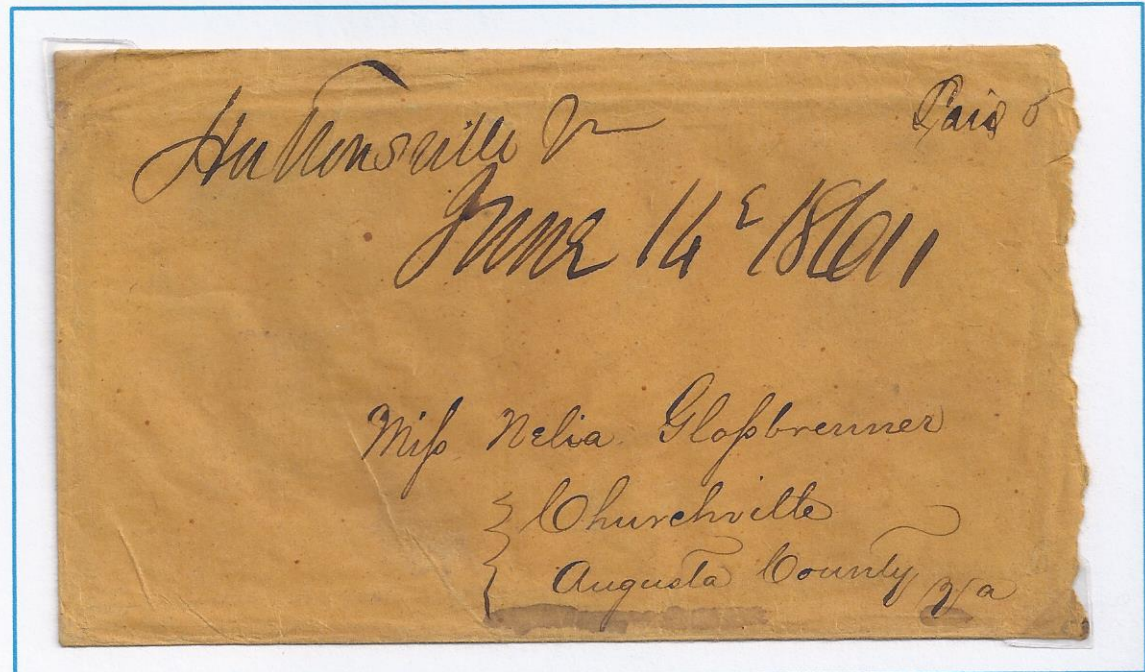 Huttonsville Va
Paid 5
June 14 1861
Miſs Nelia Gloſsbrenner
Churchville
Augusta County Va